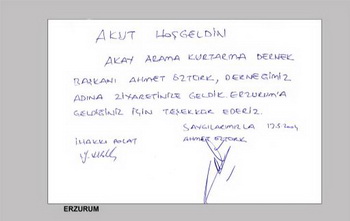 AKUT HOŞGELDİN
AKAY ARAMA KURTARMA DERNEK
BAŞKANI AHMET ÖZTÜRK, DERNEĞİMİZ
ADINA ZİYARETİNİZE GELDİK ERZURUM'A
GELDİĞİNİZ İÇİN TEŞEKKÜR EDERİZ
SAYGILARIMIZLA
İ.HAKKI POLAT AHMET ÖZTÜRK
ERZURUM